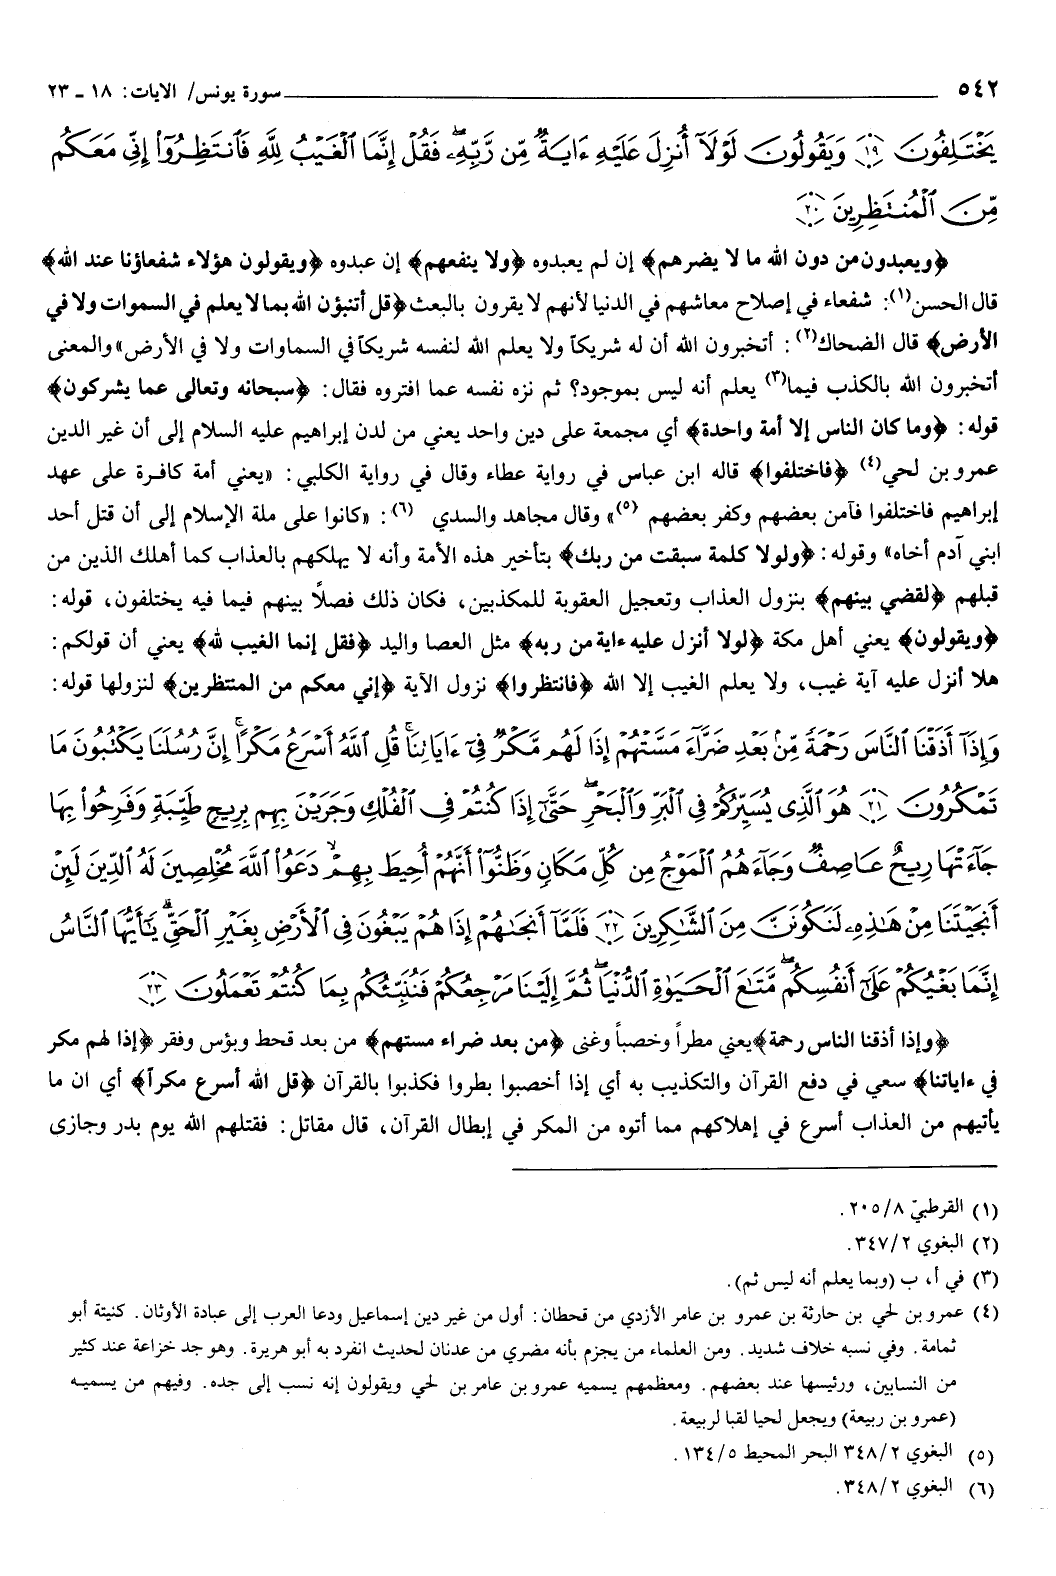 ٥٤٢ سورة يونس/ الايات: ١٨ ـ ٢٣
يَخْتَلِفُونَ ١٩ وَيَقُولُونَ لَوْلَآ أُنزِلَ عَلَيْهِ ءَايَةٌ مِّن رَّبِّهِۦ فَقُلْ إِنَّمَا ٱلْغَيْبُ لِلَّهِ فَٱنتَظِرُوٓا۟ إِنِّى مَعَكُم
مِّنَ ٱلْمُنتَظِرِينَ ٢٠
﴿ويعبدون من دون الله ما لا يضرهم﴾ إن لم يعبدوه ﴿ولا ينفعهم﴾ إن عبدوه ﴿ويقولون هؤلاء شفعاؤنا عند الله﴾
قال الحسن(١): شفعاء في إصلاح معاشهم في الدنيا لأنهم لا يقرون بالبعث ﴿قل أتنبؤن الله بما لا يعلم في السموات ولا في
الأرض﴾ قال الضحاك(٢): أتخبرون الله أن له شريكاً ولا يعلم الله لنفسه شريكاً في السماوات ولا في الأرض» والمعنى
أتخبرون الله بالكذب فيما(٣) يعلم أنه ليس بموجود؟ ثم نزه نفسه عما افتروه فقال: ﴿سبحانه وتعالى عما يشركون﴾
قوله: ﴿وما كان الناس إلا أمة واحدة﴾ أي مجمعة على دين واحد يعني من لدن إبراهيم عليه السلام إلى أن غير الدين
عمرو بن لحي(٤) ﴿فاختلفوا﴾ قاله ابن عباس في رواية عطاء وقال في رواية الكلبي: «يعني أمة كافرة على عهد
إبراهيم فاختلفوا فآمن بعضهم وكفر بعضهم (٥)» وقال مجاهد والسدي (٦): «كانوا على ملة الإسلام إلى أن قتل أحد
ابني آدم أخاه» وقوله: ﴿ولولا كلمة سبقت من ربك﴾ بتأخير هذه الأمة وأنه لا يهلكهم بالعذاب كما أهلك الذين من
قبلهم ﴿لقضي بينهم﴾ بنزول العذاب وتعجيل العقوبة للمكذبين، فكان ذلك فصلاً بينهم فيما فيه يختلفون، قوله:
﴿ويقولون﴾ يعني أهل مكة ﴿لولا أنزل عليه ءاية من ربه﴾ مثل العصا واليد ﴿فقل إنما الغيب لله﴾ يعني أن قولكم:
هلا أنزل عليه آية غيب، ولا يعلم الغيب إلا الله ﴿فانتظروا﴾ نزول الآية ﴿إني معكم من المنتظرين﴾ لنزولها قوله:
وَإِذَآ أَذَقْنَا ٱلنَّاسَ رَحْمَةً مِّنۢ بَعْدِ ضَرَّآءَ مَسَّتْهُمْ إِذَا لَهُم مَّكْرٌ فِىٓ ءَايَاتِنَا ۚ قُلِ ٱللَّهُ أَسْرَعُ مَكْرًا ۚ إِنَّ رُسُلَنَا يَكْتُبُونَ مَا
تَمْكُرُونَ ٢١ هُوَ ٱلَّذِى يُسَيِّرُكُمْ فِى ٱلْبَرِّ وَٱلْبَحْرِ ۖ حَتَّىٰٓ إِذَا كُنتُمْ فِى ٱلْفُلْكِ وَجَرَيْنَ بِهِم بِرِيحٍ طَيِّبَةٍ وَفَرِحُوا۟ بِهَا
جَآءَتْهَا رِيحٌ عَاصِفٌ وَجَآءَهُمُ ٱلْمَوْجُ مِن كُلِّ مَكَانٍ وَظَنُّوٓا۟ أَنَّهُمْ أُحِيطَ بِهِمْ ۙ دَعَوُا۟ ٱللَّهَ مُخْلِصِينَ لَهُ ٱلدِّينَ لَئِنْ
أَنجَيْتَنَا مِنْ هَٰذِهِۦ لَنَكُونَنَّ مِنَ ٱلشَّٰكِرِينَ ٢٢ فَلَمَّآ أَنجَىٰهُمْ إِذَا هُمْ يَبْغُونَ فِى ٱلْأَرْضِ بِغَيْرِ ٱلْحَقِّ ۗ يَٰٓأَيُّهَا ٱلنَّاسُ
إِنَّمَا بَغْيُكُمْ عَلَىٰٓ أَنفُسِكُم ۖ مَّتَٰعَ ٱلْحَيَوٰةِ ٱلدُّنْيَا ۖ ثُمَّ إِلَيْنَا مَرْجِعُكُمْ فَنُنَبِّئُكُم بِمَا كُنتُمْ تَعْمَلُونَ ٢٣
﴿وإذا أذقنا الناس رحمة﴾ يعني مطراً وخصباً وغنى ﴿من بعد ضراء مستهم﴾ من بعد قحط وبؤس وفقر ﴿إذا لهم مكر
في ءاياتنا﴾ سعي في دفع القرآن والتكذيب به أي إذا أخصبوا بطروا فكذبوا بالقرآن ﴿قل الله أسرع مكراً﴾ أي ان ما
يأتيهم من العذاب أسرع في إهلاكهم مما أتوه من المكر في إبطال القرآن، قال مقاتل: فقتلهم الله يوم بدر وجازى
(١) القرطبيّ ٢٠٥/٨.
(٢) البغوي ٣٤٧/٢.
(٣) في أ، ب (وبما يعلم أنه ليس ثم).
(٤) عمرو بن لحي بن حارثة بن عمرو بن عامر الأزدي من قحطان: أول من غير دين إسماعيل ودعا العرب إلى عبادة الأوثان. كنيتة أبو
ثمامة. وفي نسبه خلاف شديد. ومن العلماء من يجزم بأنه مضري من عدنان لحديث انفرد به أبو هريرة. وهو جد خزاعة عند كثير
من النسابين، ورئيسها عند بعضهم. ومعظمهم يسميه عمرو بن عامر بن لحي ويقولون إنه نسب إلى جده. وفيهم من يسميه
(عمرو بن ربيعة) ويجعل لحيا لقبا لربيعة.
(٥) البغوي ٣٤٨/٢ البحر المحيط ١٣٤/٥.
(٦) البغوي ٣٤٨/٢.